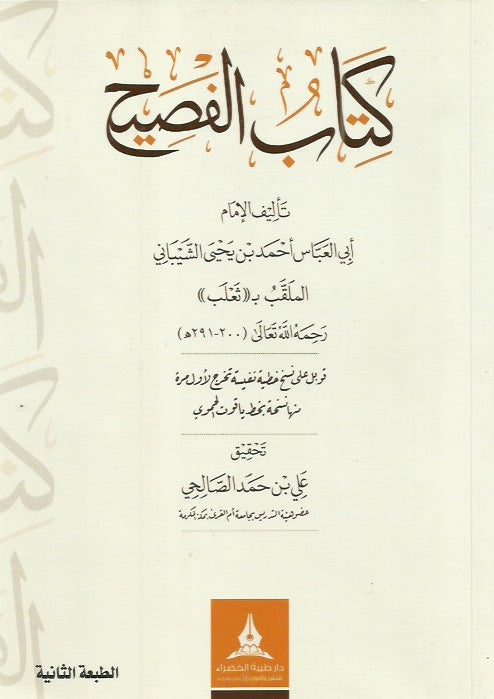 كِتَابُ الفَصِيح
تَأْلِيفُ الإِمَام
أَبِي العَبَّاس أَحْمَد بْن يَحْيَى الشَّيْبَانِي
الملَقَّبُ بـ «ثَعْلَب»
رَحِمَهُ اللَّهُ تَعَالَى (٢٠٠-٢٩١ھ)
قوبل على نسخ خطية نفيسة تخرج لأول مرة
منها نسخة بخط ياقوت الحموي
تَحْقِيق
عَلِي بْن حَمَد الصَّالِحِي
عضو هيئة التدريس بجامعة أم القرى بمكة المكرمة
دار طيبة الخضراء
للنشر والتوزيع
الطبعة الثانية